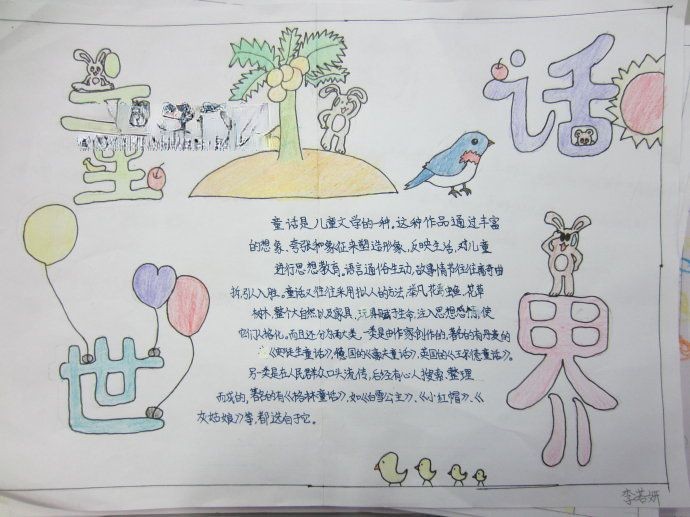 童话
世界
童话是儿童文学的一种,这种作品通过丰富
的想象、夸张和象征来塑造形象,反映生活,对儿童
进行思想教育,语言通俗生动,故事情节往往离奇曲
折,引人入胜。童话又往往采用拟人的方法,举凡花鸟虫鱼,花草
树木,整个大自然以及家具、玩具赋于生命,注入思想感情,使
它们人格化。而且还分为两大类,一类是由作家创作的,著名的有丹麦的
《安徒生童话》,德国的《豪夫童话》,英国的《王尔德童话》。
另一类是在人民群众口头流传,后经有心人搜索、整理
而成的,著名的有《格林童话》,如《白雪公主》、《小红帽》、《
灰姑娘》等,都选自于它。
李若妍